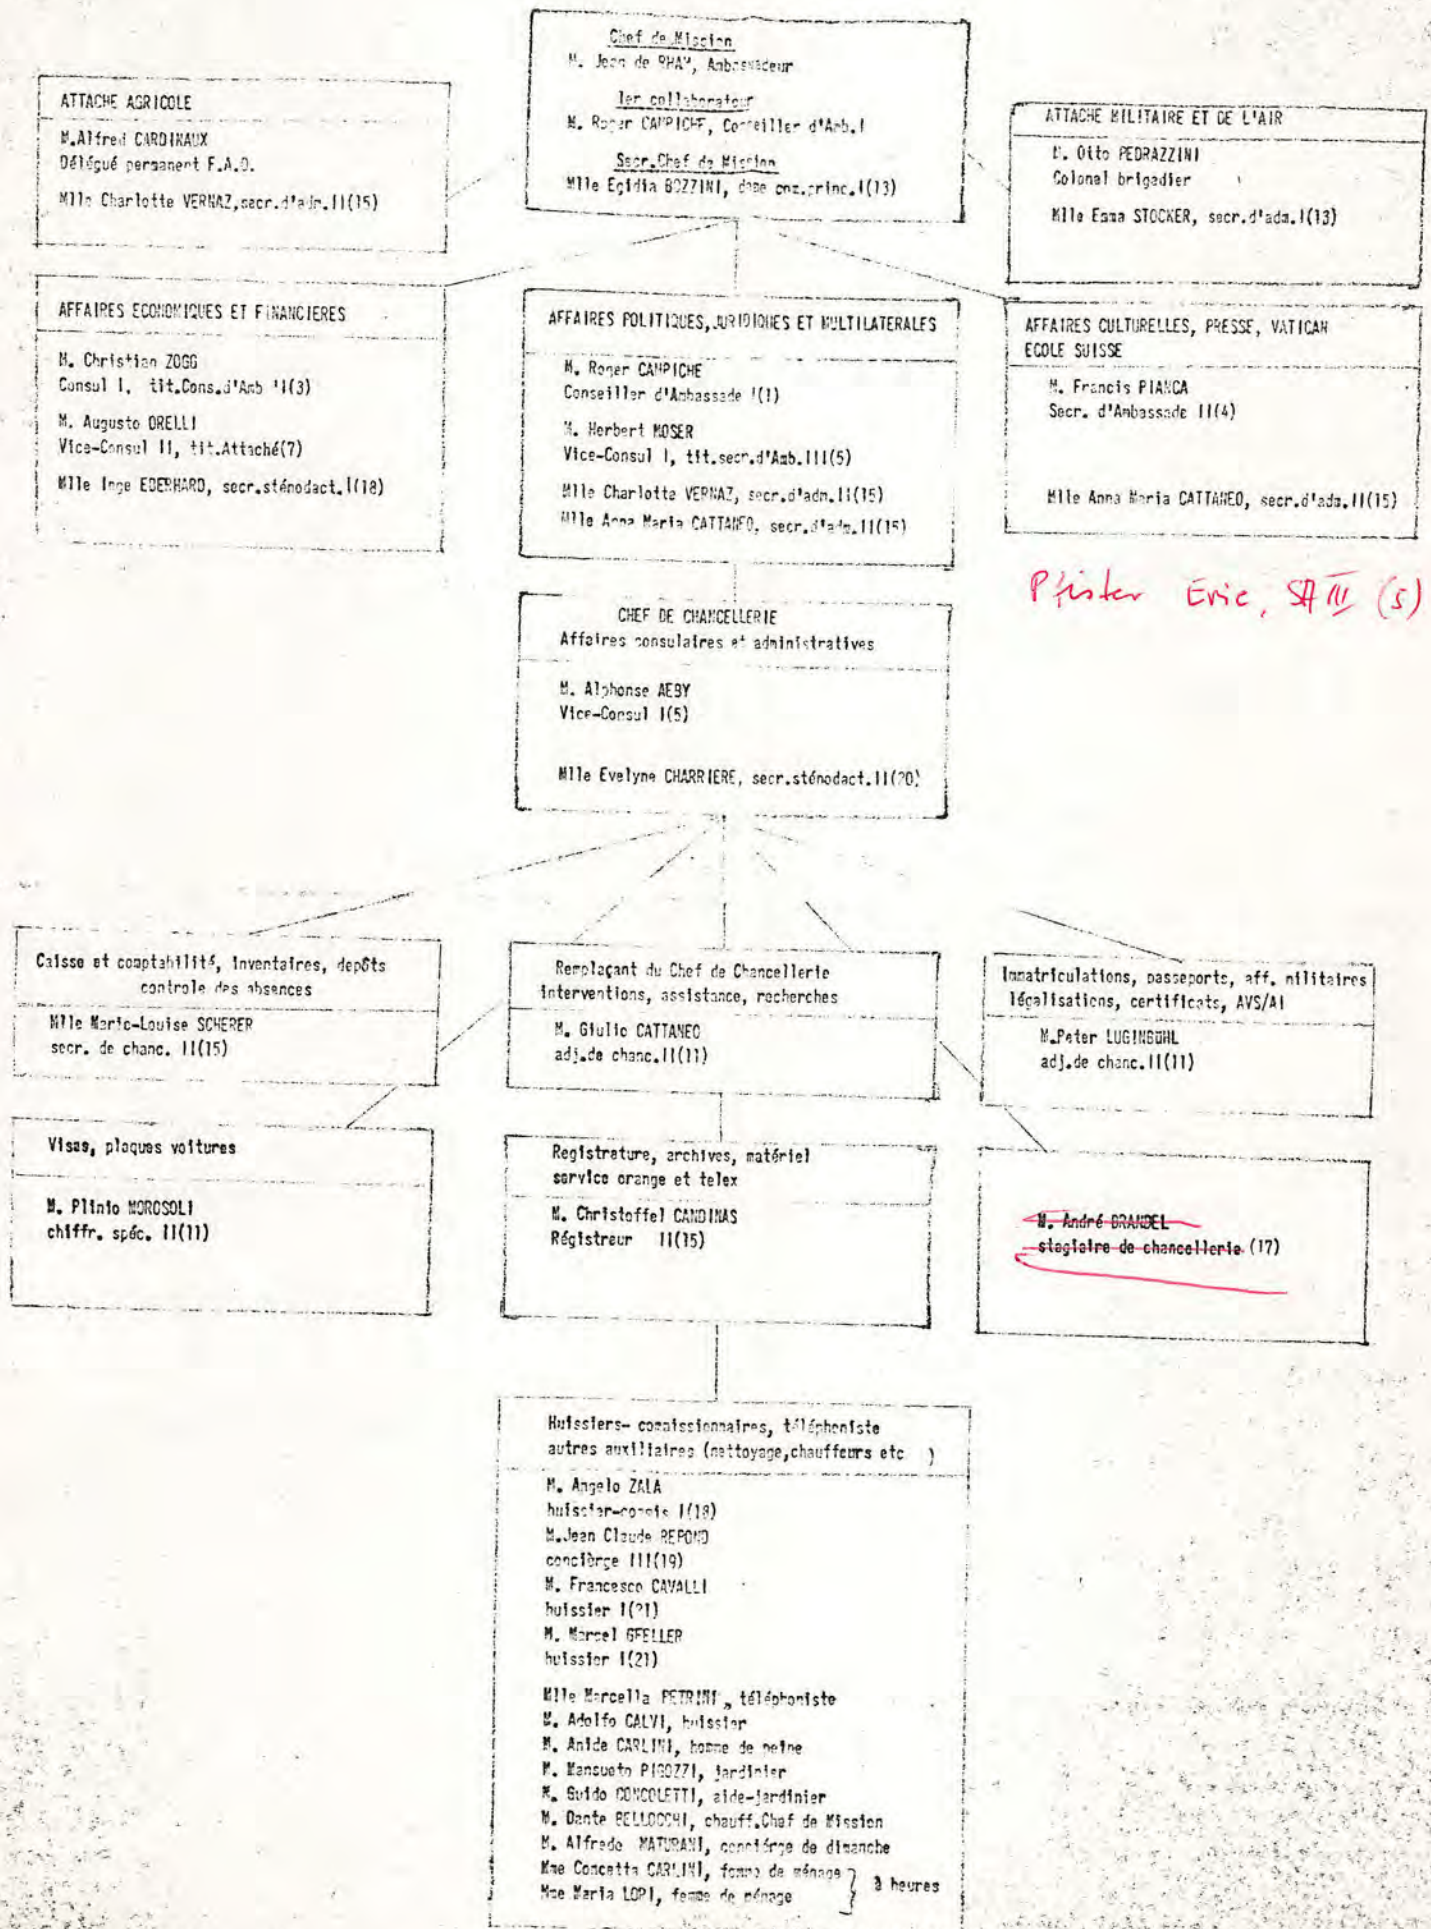 Chef de Mission
M. Jean de RHAM, Ambassadeur
1er collaborateur
M. Roger CAMPICHE, Conseiller d'Amb.I
Secr.Chef de Mission
Mlle Egidia BOZZINI, dame com.princ.I(13)
ATTACHE AGRICOLE
M.Alfred CARDINAUX
Délégué permanent F.A.O.
Mlle Charlotte VERNAZ,secr.d'adm.II(15)
ATTACHE MILITAIRE ET DE L'AIR
M. Otto PEDRAZZINI
Colonel brigadier
Mlle Emma STOCKER, secr.d'adm.I(13)
AFFAIRES ECONOMIQUES ET FINANCIERES
M. Christian ZOGG
Consul I, tit.Cons.d'Amb II(3)
M. Augusto ORELLI
Vice-Consul II, tit.Attaché(7)
Mlle Inge EBERHARD, secr.sténodact.I(18)
AFFAIRES POLITIQUES,JURIDIQUES ET MULTILATERALES
M. Roger CAMPICHE
Conseiller d'Ambassade I(1)
M. Herbert MOSER
Vice-Consul I, tit.secr.d'Amb.III(5)
Mlle Charlotte VERNAZ, secr.d'adm.II(15)
Mlle Anna Maria CATTANEO, secr.d'adm.II(15)
AFFAIRES CULTURELLES, PRESSE, VATICAN
ECOLE SUISSE
M. Francis PIANCA
Secr. d'Ambassade II(4)
Mlle Anna Maria CATTANEO, secr.d'adm.II(15)
Pfister Eric, SA III (5)
CHEF DE CHANCELLERIE
Affaires consulaires et administratives
M. Alphonse AEBY
Vice-Consul I(5)
Mlle Evelyne CHARRIERE, secr.sténodact.II(20)
Caisse et comptabilité, inventaires, depôts
controle des absences
Mlle Marie-Louise SCHERER
secr. de chanc. II(15)
Remplaçant du Chef de Chancellerie
interventions, assistance, recherches
M. Giulio CATTANEO
adj.de chanc.II(11)
Immatriculations, passeports, aff. militaires
légalisations, certificats, AVS/AI
M.Peter LUGINBÜHL
adj.de chanc.II(11)
Visas, plaques voitures
M. Plinio MOROSOLI
chiffr. spéc. II(11)
Registrature, archives, matériel
service orange et telex
M. Christoffel CANDINAS
Régistreur II(15)
M. André BRANDEL
stagiaire de chancellerie (17)
Huissiers- comaissionnaires, téléphoniste
autres auxiliaires (nettoyage,chauffeurs etc )
M. Angelo ZALA
huissier-commis I(18)
M.Jean Claude REPOND
concièrge III(19)
M. Francesco CAVALLI
huissier I(21)
M. Marcel GFELLER
huissier I(21)
Mlle Marcella PETRINI, téléphoniste
M. Adolfo CALVI, huissier
M. Anide CARLINI, homme de peine
M. Mansueto PIGOZZI, jardinier
M. Guido CONCOLETTI, aide-jardinier
M. Dante BELLOCCHI, chauff.Chef de Mission
M. Alfredo MATURANI, concièrge de dimanche
Mme Concetta CARLINI, femme de ménage
à heures
Mme Maria LOPI, femme de ménage